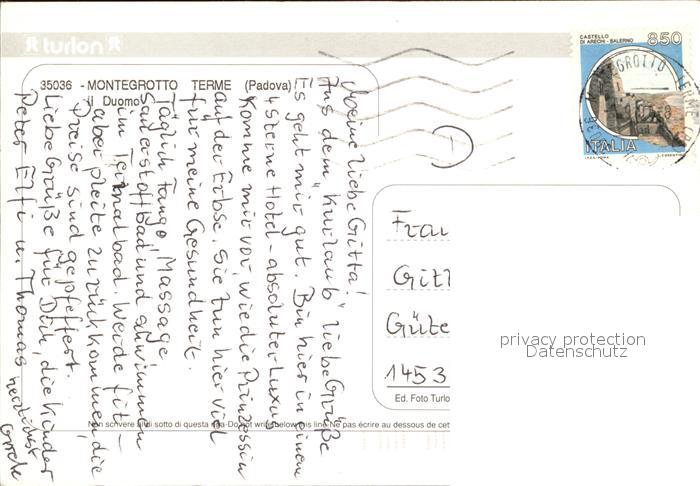 turlon
35036 - MONTEGROTTO TERME (Padova)
Il Duomo
CASTELLO
DI ARECHI - SALERNO
850
ITALIA
I.P.Z.S. - ROMA
MONTEGROTTO TERME
Meine liebe Gitta!
Aus dem "Kurlaub" liebe Grüße
Es geht mir gut. Bin hier in einem
4 sterne Hotel - absoluter Luxus
Komme mir vor, wie die Prinzessin
auf der Erbse. Sie tun hier viel
für meine Gesundheit.
Täglich Fango, Massage,
Sauerstoffbad und schwimmen
im Termalbad. Werde fit -
aber pleite zurück kommen, die
Preise sind gepfeffert.
Liebe Grüße für Dich, die Kinder
Peter Elfi u. Thomas herzlichst
Frau
Gitt
Güte
1453
Ed. Foto Turlo
privacy protection
Datenschutz
Non scrivere al di sotto di questa riga-Do not write below this line-Ne pas écrire au dessous de cet